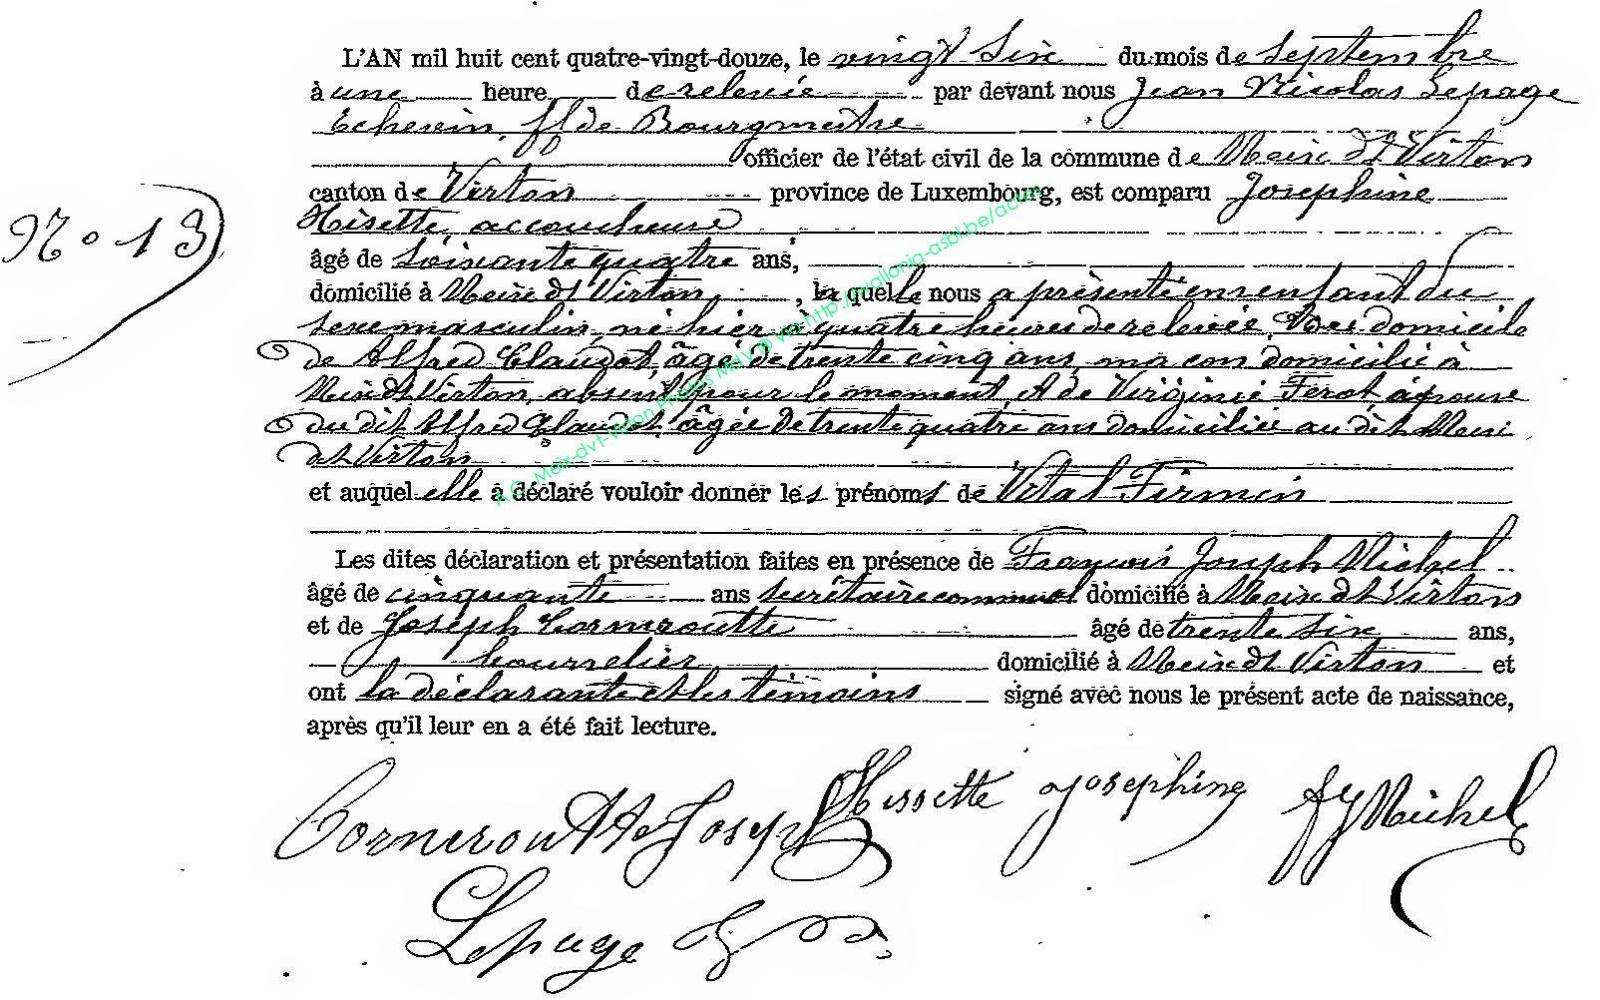 L'AN mil huit cent quatre-vingt-douze, le vingt Six du mois de Septembre
à une heure de relevée par devant nous Jean Nicolas Lepage
Echevin, ff de Bourgmestre
officier de l'état civil de la commune de Meix dt Virton
canton de Virton province de Luxembourg, est comparu Joséphine
N° 13
Hisette, accoucheuse
âgé de Soixante quatre ans,
domicilié à Meix dt Virton, la quelle nous a présenté un enfant du
sexe masculin, né hier à quatre heures de relevée, au domicile
de Alfred Claudot, âgé de trente cinq ans, domicilié à
Meix dt Virton, absent pour le moment, et de Virginie Ferot, épouse
du dit Alfred Claudot, âgée de trente quatre ans domiciliée au dit Meix
dt Virton
et auquel elle a déclaré vouloir donner les prénoms de Vital Firmin
Les dites déclaration et présentation faites en présence de François Joseph Michel
âgé de cinquante ans secrétaire communal domicilié à Meix dt Virton
et de Joseph Corneroutte âgé de trente six ans,
bourrelier domicilié à Meix dt Virton et
ont la déclarante et les témoins signé avec nous le présent acte de naissance,
après qu'il leur en a été fait lecture.
Corneroutte Joseph Hissette Joséphine fJ Michel
Lepage